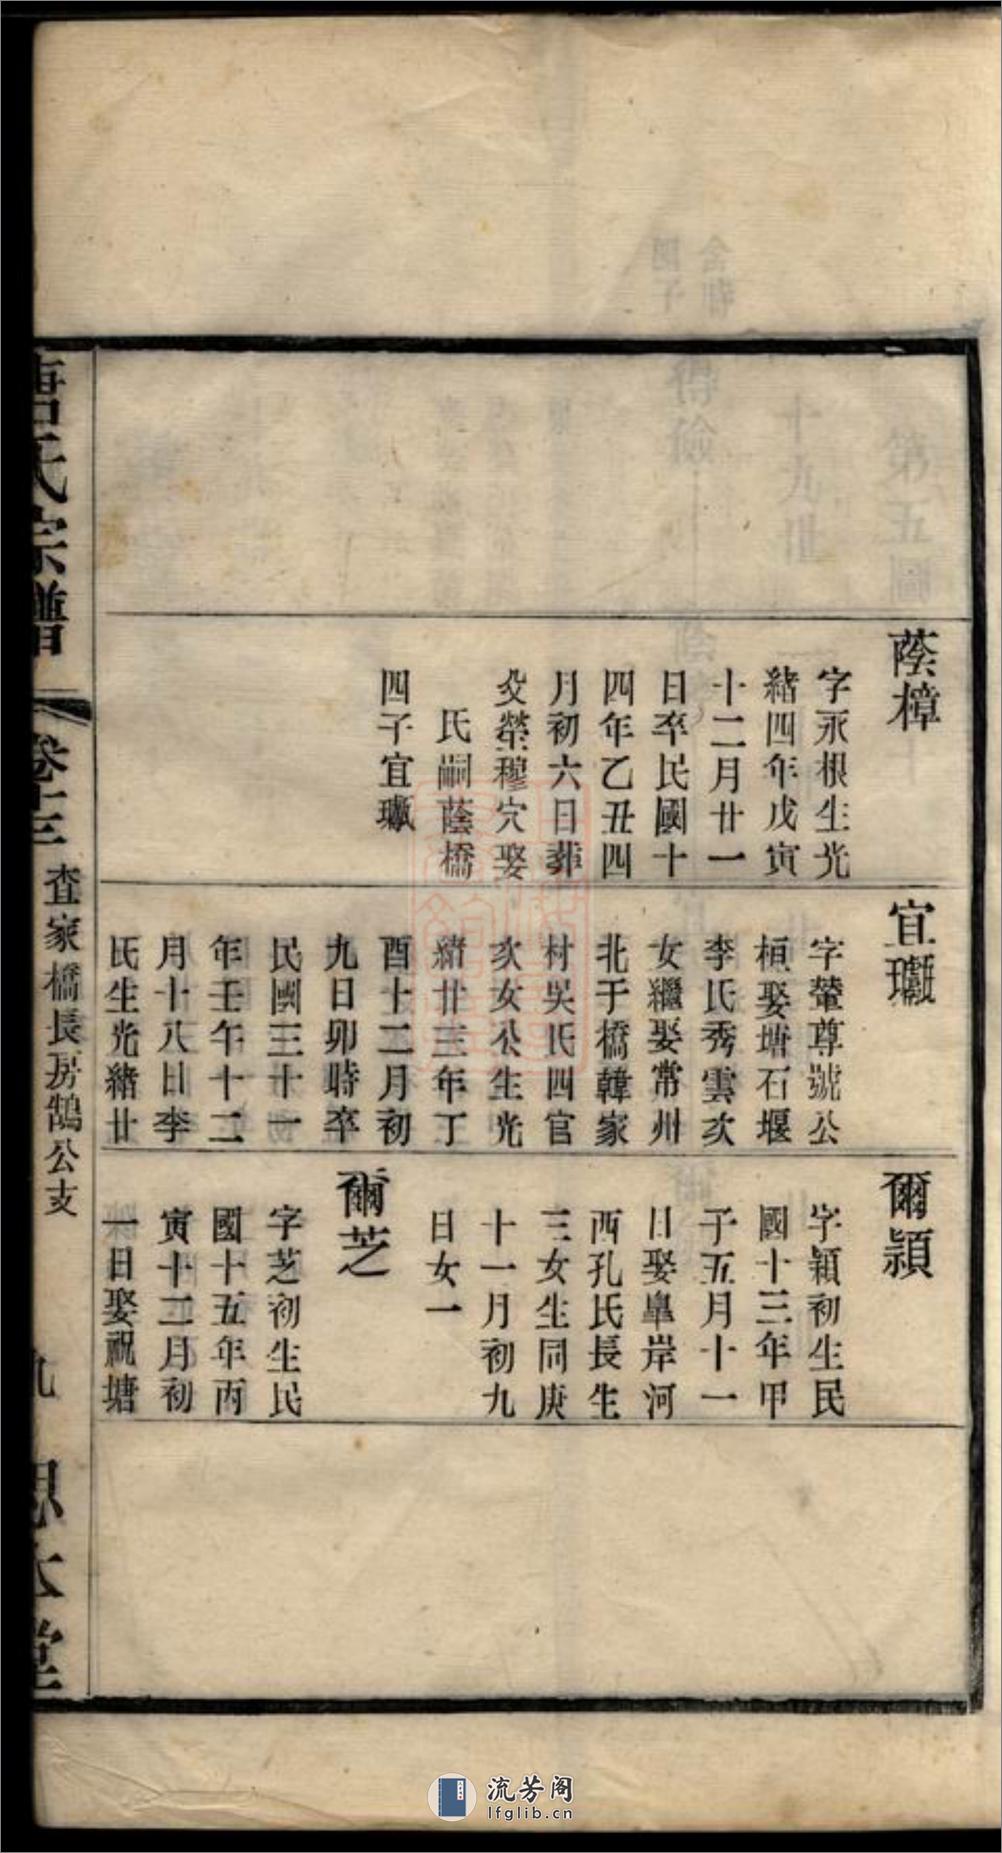 蔭樟
字永根生光
緒四年戊寅
十二月廿一
日卒民國十
四年乙丑四
月初六日葬
父塋穆穴娶
氏嗣蔭橋
四子宜瓛
宜瓛
字聲尊號公
桓娶塘石堰
李氏秀雲次
女繼娶常州
北于橋韓家
村吳氏四官
次女公生光
緒廿三年丁
酉十二月初
九日卯時卒
民國三十一
年壬午十二
月十八日李
氏生光緒廿
爾穎
字穎初生民
國十三年甲
子五月十一
日娶皐岸河
西孔氏長生
三女生同庚
十一月初九
日女一
爾芝
字芝初生民
國十五年丙
寅十二月初
一日娶祝塘
唐氏宗譜
卷十三
查家橋長房鵠公支
九
思本堂
流芳阁
lfglib.cn